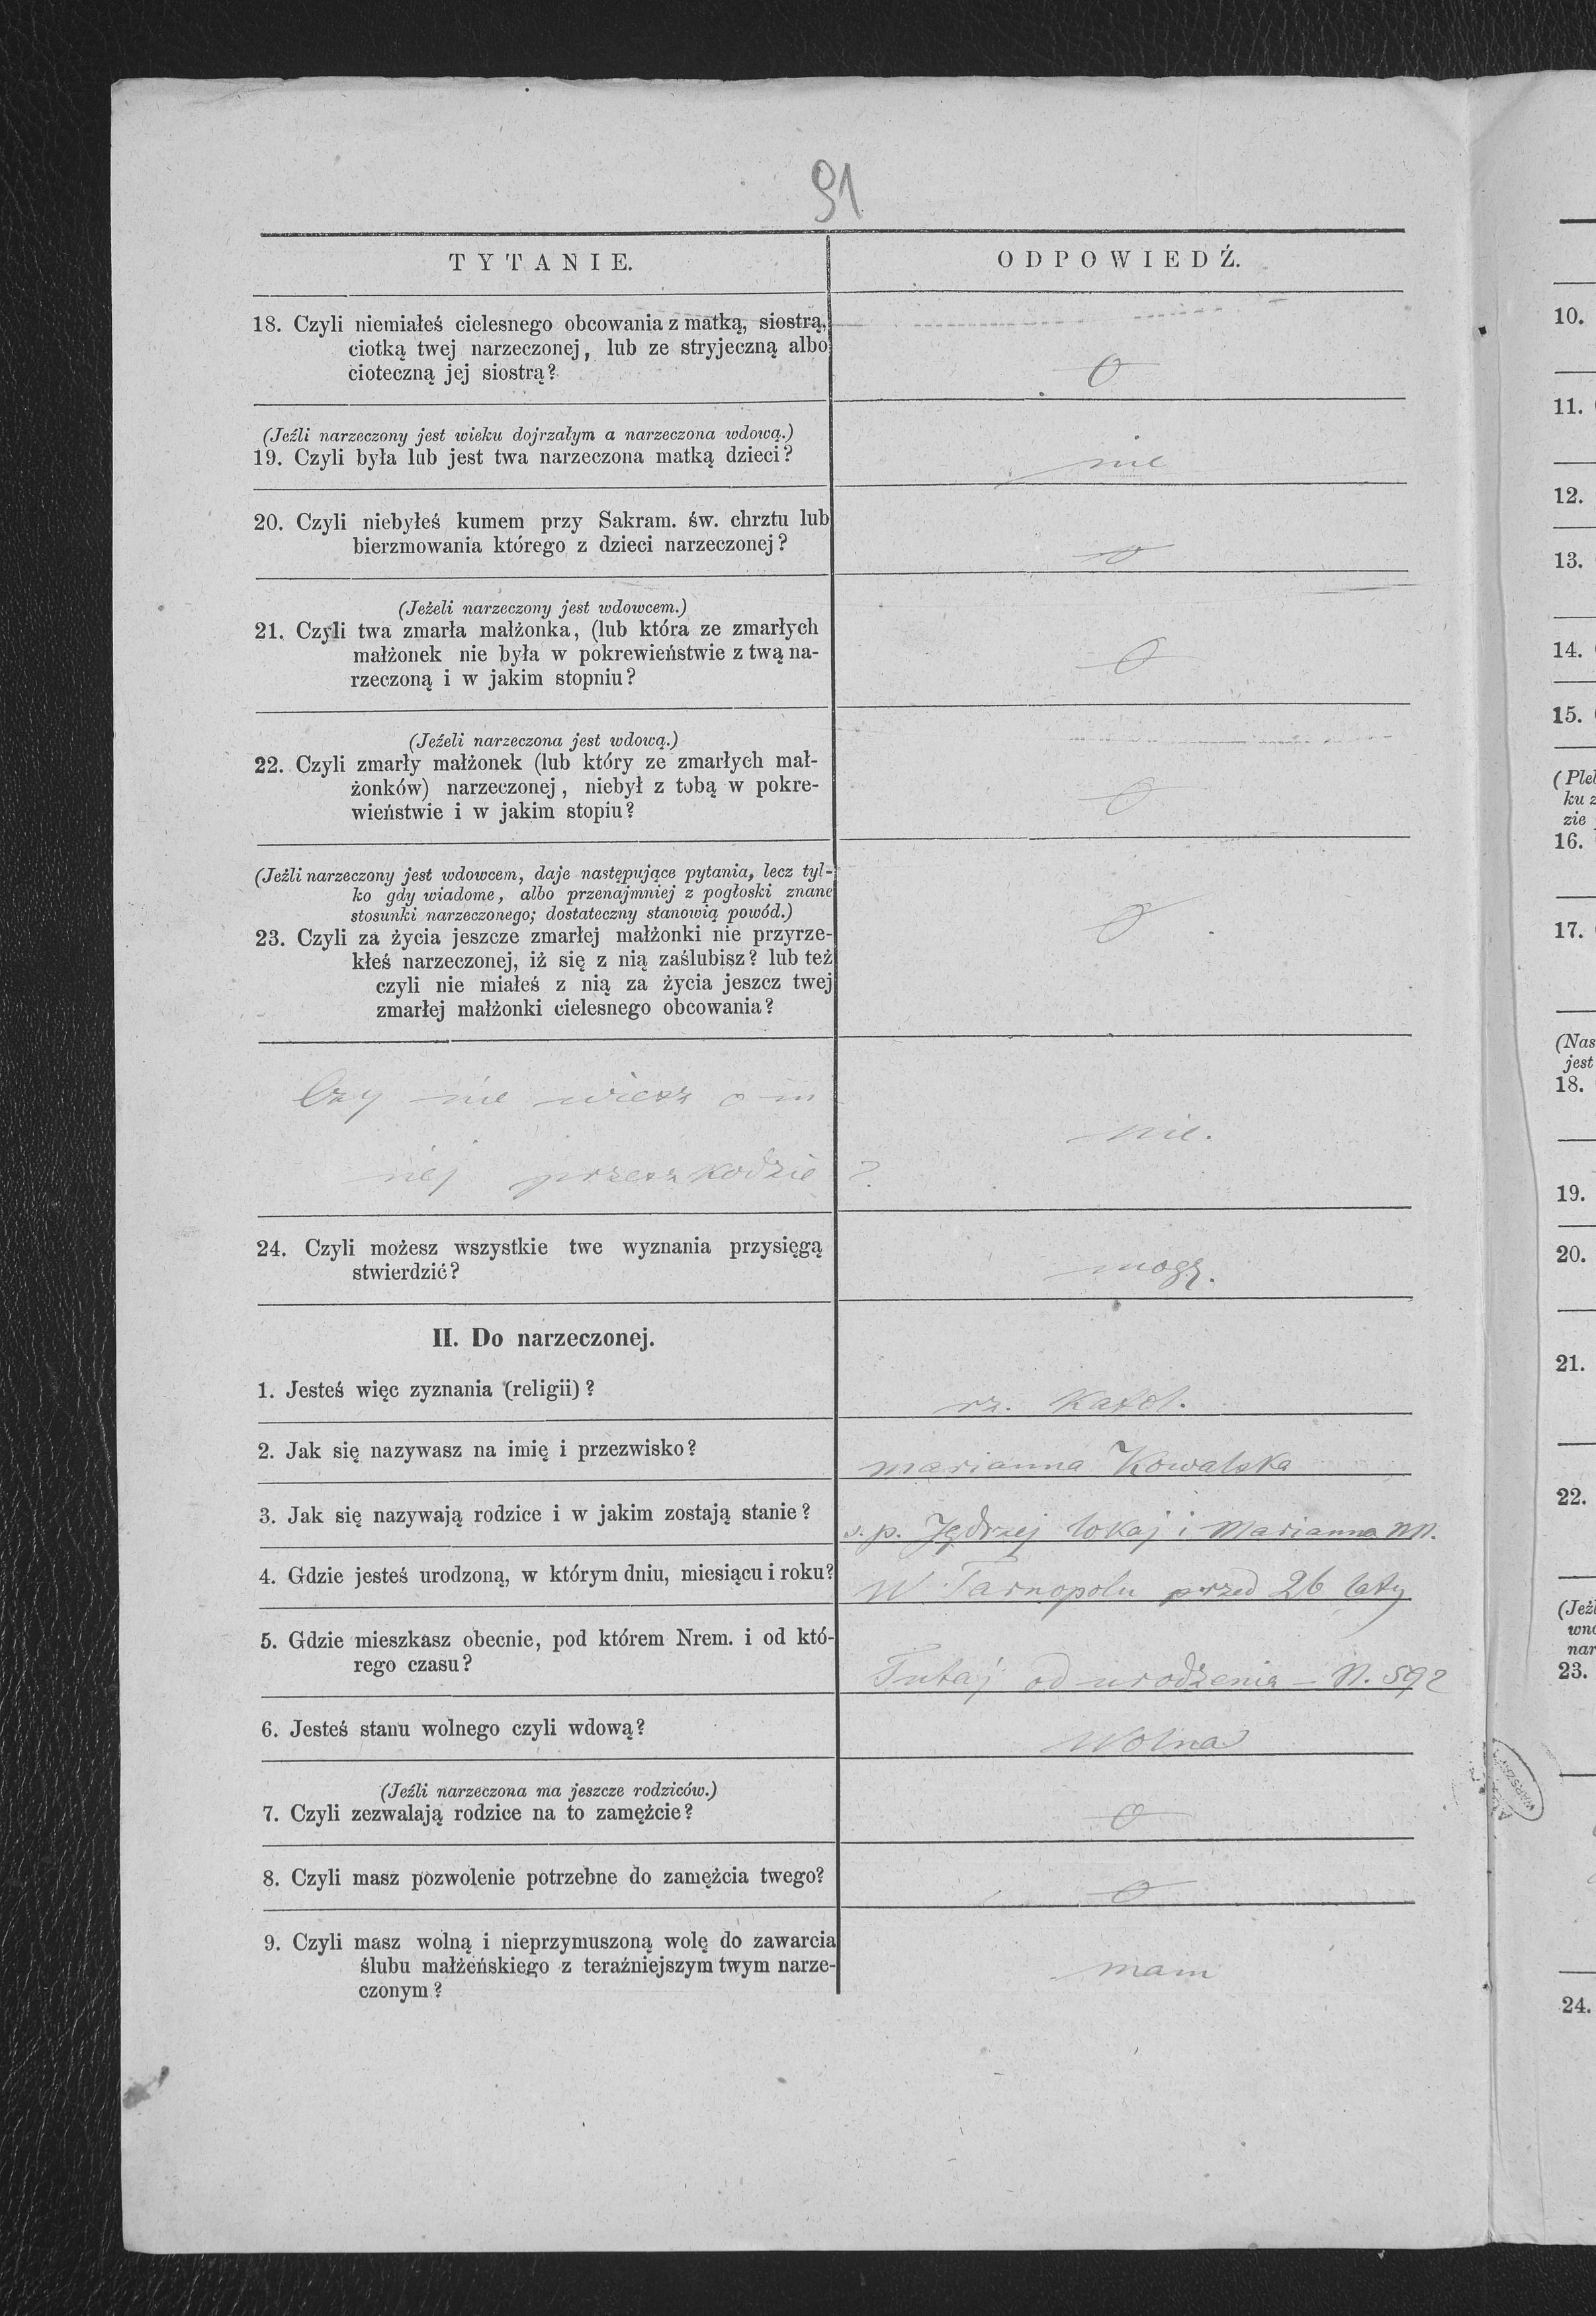 91
TYTANIE.
ODPOWIEDŹ.
18. Czyli niemiałeś cielesnego obcowania z matką, siostrą,
ciotką twej narzeczonej, lub ze stryjeczną albo
cioteczną jej siostrą?
0
(Jeźli narzeczony jest wieku dojrzałym a narzeczona wdową.)
19. Czyli była lub jest twa narzeczona matką dzieci?
nie
20. Czyli niebyłeś kumem przy Sakram. św. chrztu lub
bierzmowania którego z dzieci narzeczonej?
0
(Jeżeli narzeczony jest wdowcem.)
21. Czyli twa zmarła małżonka, (lub która ze zmarłych
małżonek nie była w pokrewieństwie z twą na-
rzeczoną i w jakim stopniu?
0
(Jeżeli narzeczona jest wdową.)
22. Czyli zmarły małżonek (lub który ze zmarłych mał-
żonków) narzeczonej, niebył z tobą w pokre-
wieństwie i w jakim stopiu?
0
(Jeźli narzeczony jest wdowcem, daje następujące pytania, lecz tyl-
ko gdy wiadome, albo przenajmniej z pogłoski znane
stosunki narzeczonego; dostateczny stanowią powód.)
23. Czyli za życia jeszcze zmarłej małżonki nie przyrze-
kłeś narzeczonej, iż się z nią zaślubisz? lub też
czyli nie miałeś z nią za życia jeszcz twej
zmarłej małżonki cielesnego obcowania?
0
Czy nie wiesz o in
nej przeszkodzie ?
nie.
24. Czyli możesz wszystkie twe wyznania przysięgą
stwierdzić?
mogę.
II. Do narzeczonej.
1. Jesteś więc zyznania (religii)?
rz. katol.
2. Jak się nazywasz na imię i przezwisko?
Marianna Kowalska
3. Jak się nazywają rodzice i w jakim zostają stanie?
ś. p. Jędrzej lokaj i Marianna NN.
4. Gdzie jesteś urodzoną, w którym dniu, miesiącu i roku?
W Tarnopolu przed 26 laty
5. Gdzie mieszkasz obecnie, pod którem Nrem. i od któ-
rego czasu?
Tutaj od urodzenia – N. 592
6. Jesteś stanu wolnego czyli wdową?
Wolna
(Jeźli narzeczona ma jeszcze rodziców.)
7. Czyli zezwalają rodzice na to zamężcie?
0
8. Czyli masz pozwolenie potrzebne do zamężcia twego?
0
9. Czyli masz wolną i nieprzymuszoną wolę do zawarcia
ślubu małżeńskiego z teraźniejszym twym narze-
czonym?
mam
10.
11.
12.
13.
14.
15.
(Ple
ku z
zie
16.
17.
(Nas
jest
18.
19.
20.
21.
22.
(Jeź
wno
nar
23.
24.